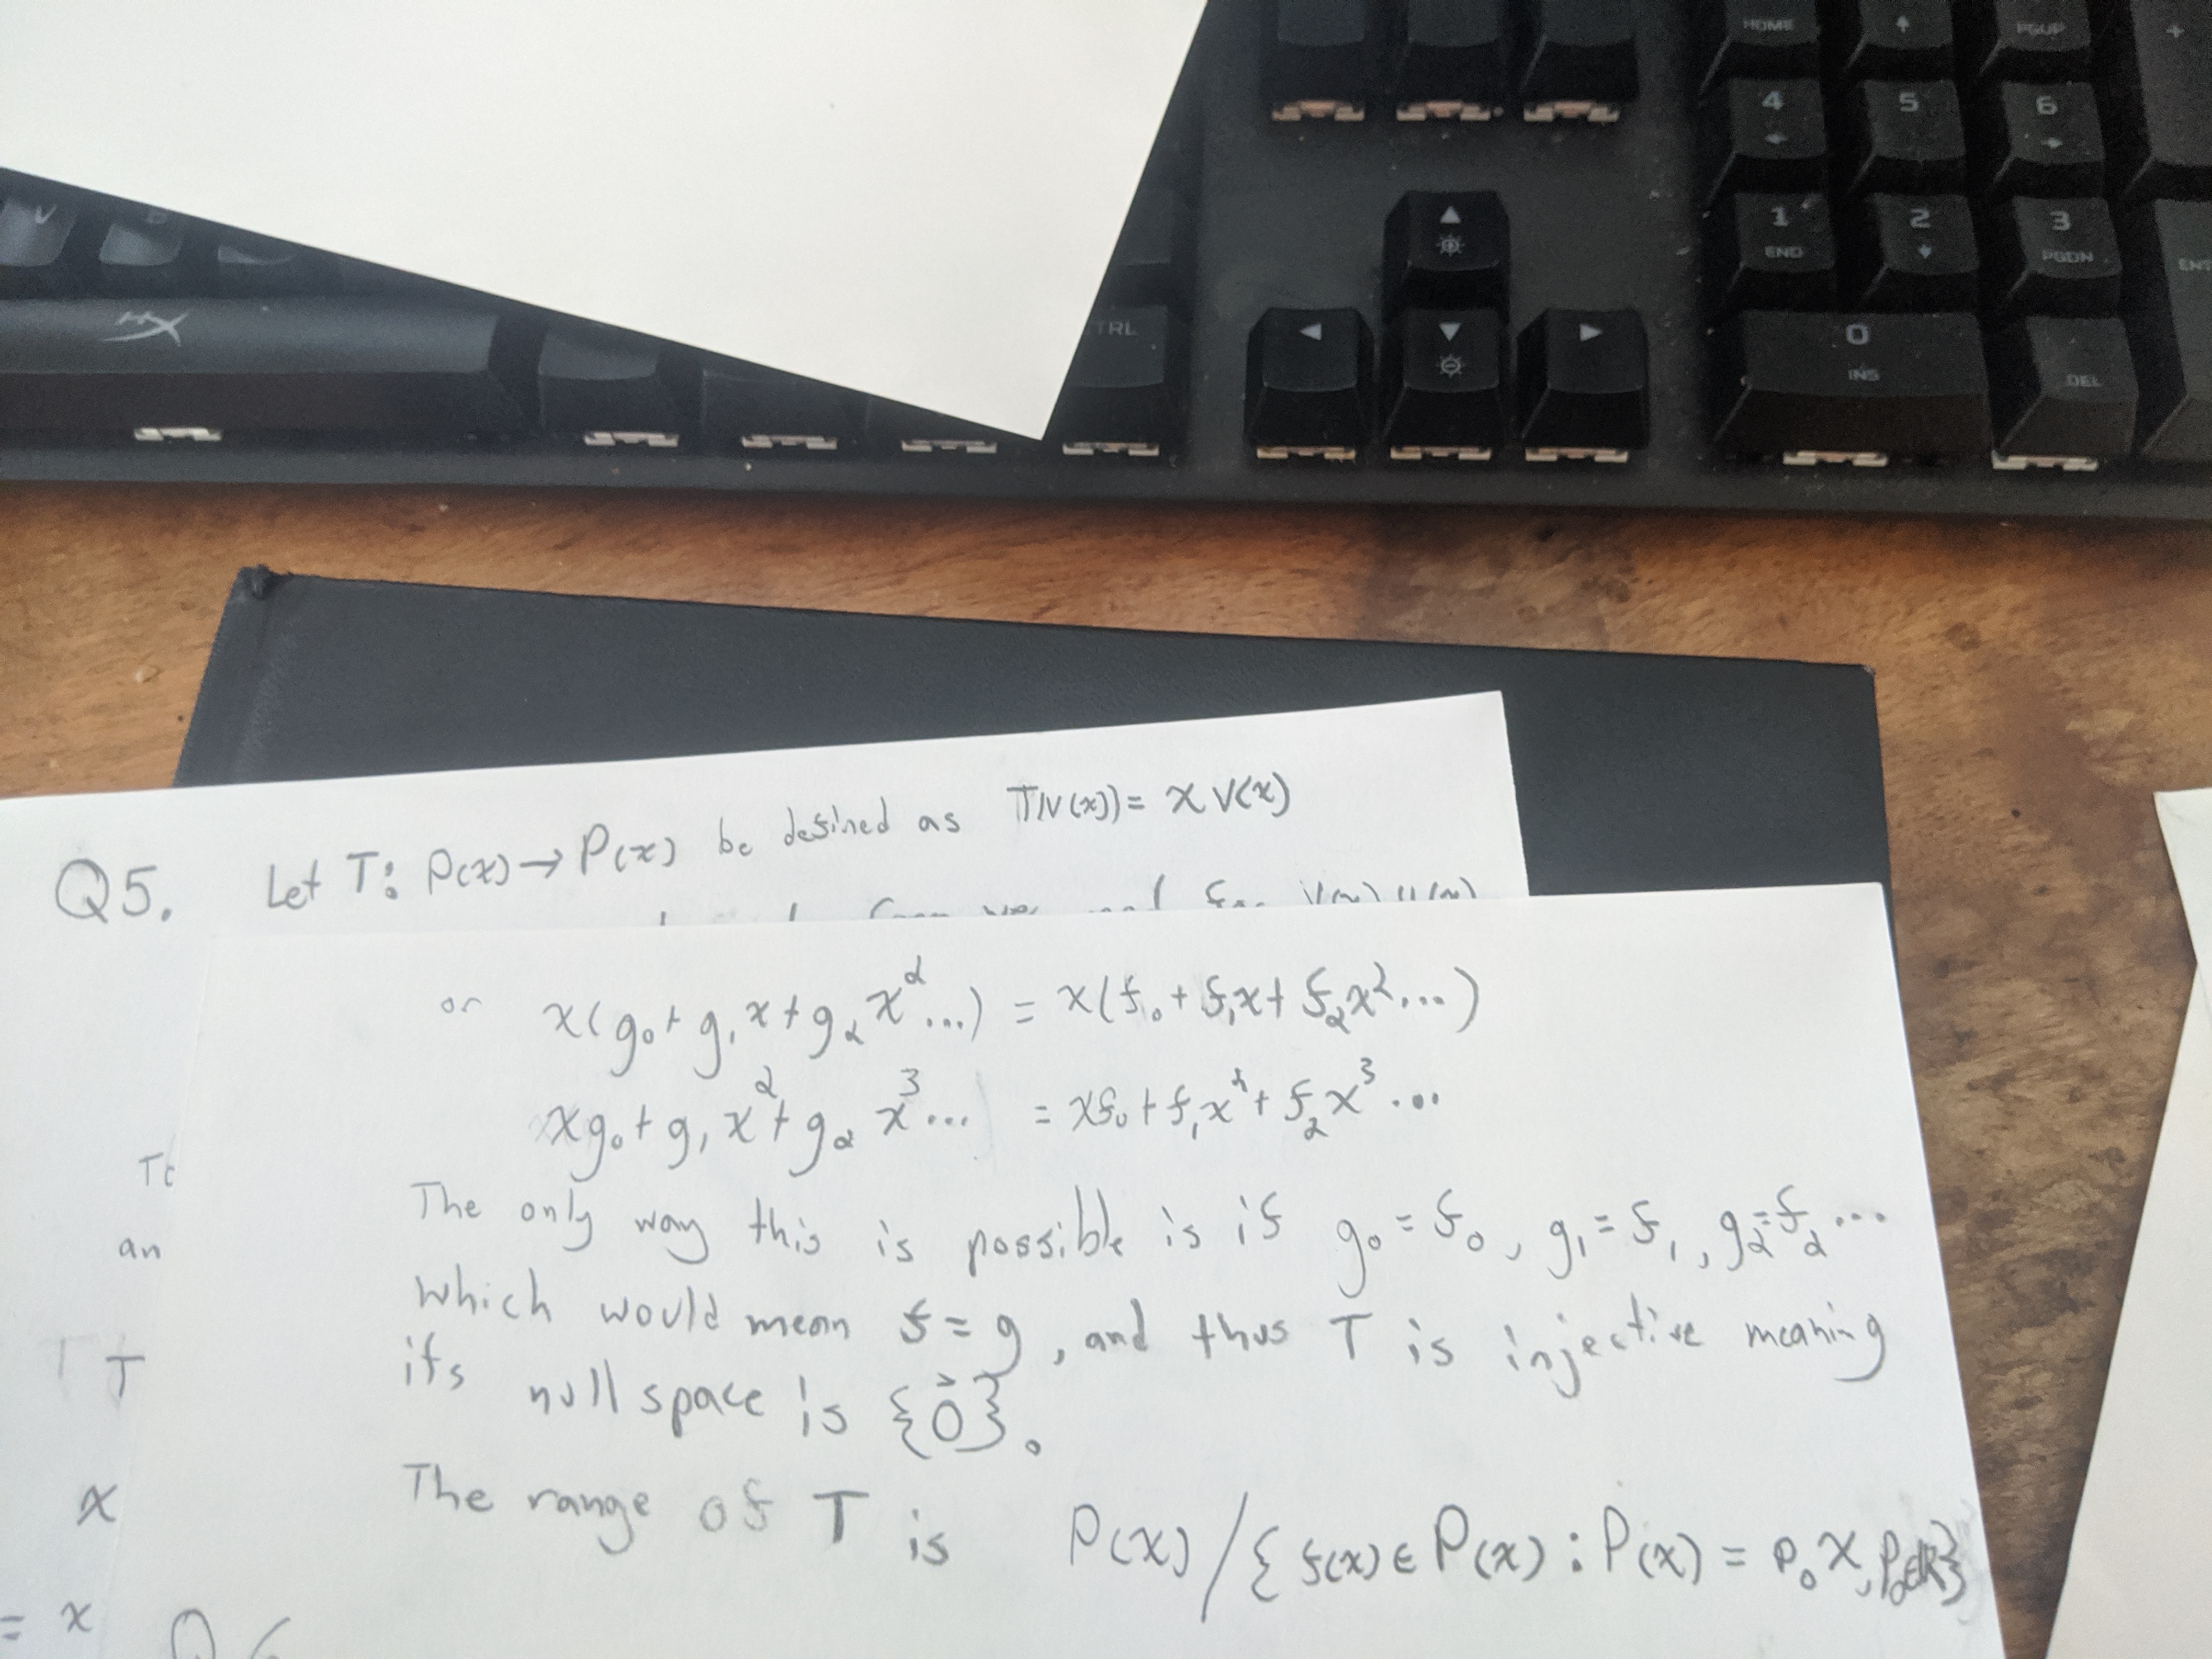 HOME
PGUP
+
4
5
6
1
END
2
3
PGDN
ENT
0
INS
DEL
TRL
V
HX
Q5. Let T: P(x) → P(x) be defined as T(V(x)) = x V(x)
or x(g₀ + g₁x + g₂x²...) = x(f₀ + f₁x + f₂x²...)
xg₀ + g₁x² + g₂x³... = xf₀ + f₁x² + f₂x³...
The only way this is possible is if g₀ = f₀, g₁ = f₁, g₂ = f₂ ...
which would mean f = g, and thus T is injective meaning
its null space is {0⃗}.
The range of T is P(x) / { f(x) ∈ P(x) : P(x) = p₀x, p₀∈ℝ}
an
T
x
= x